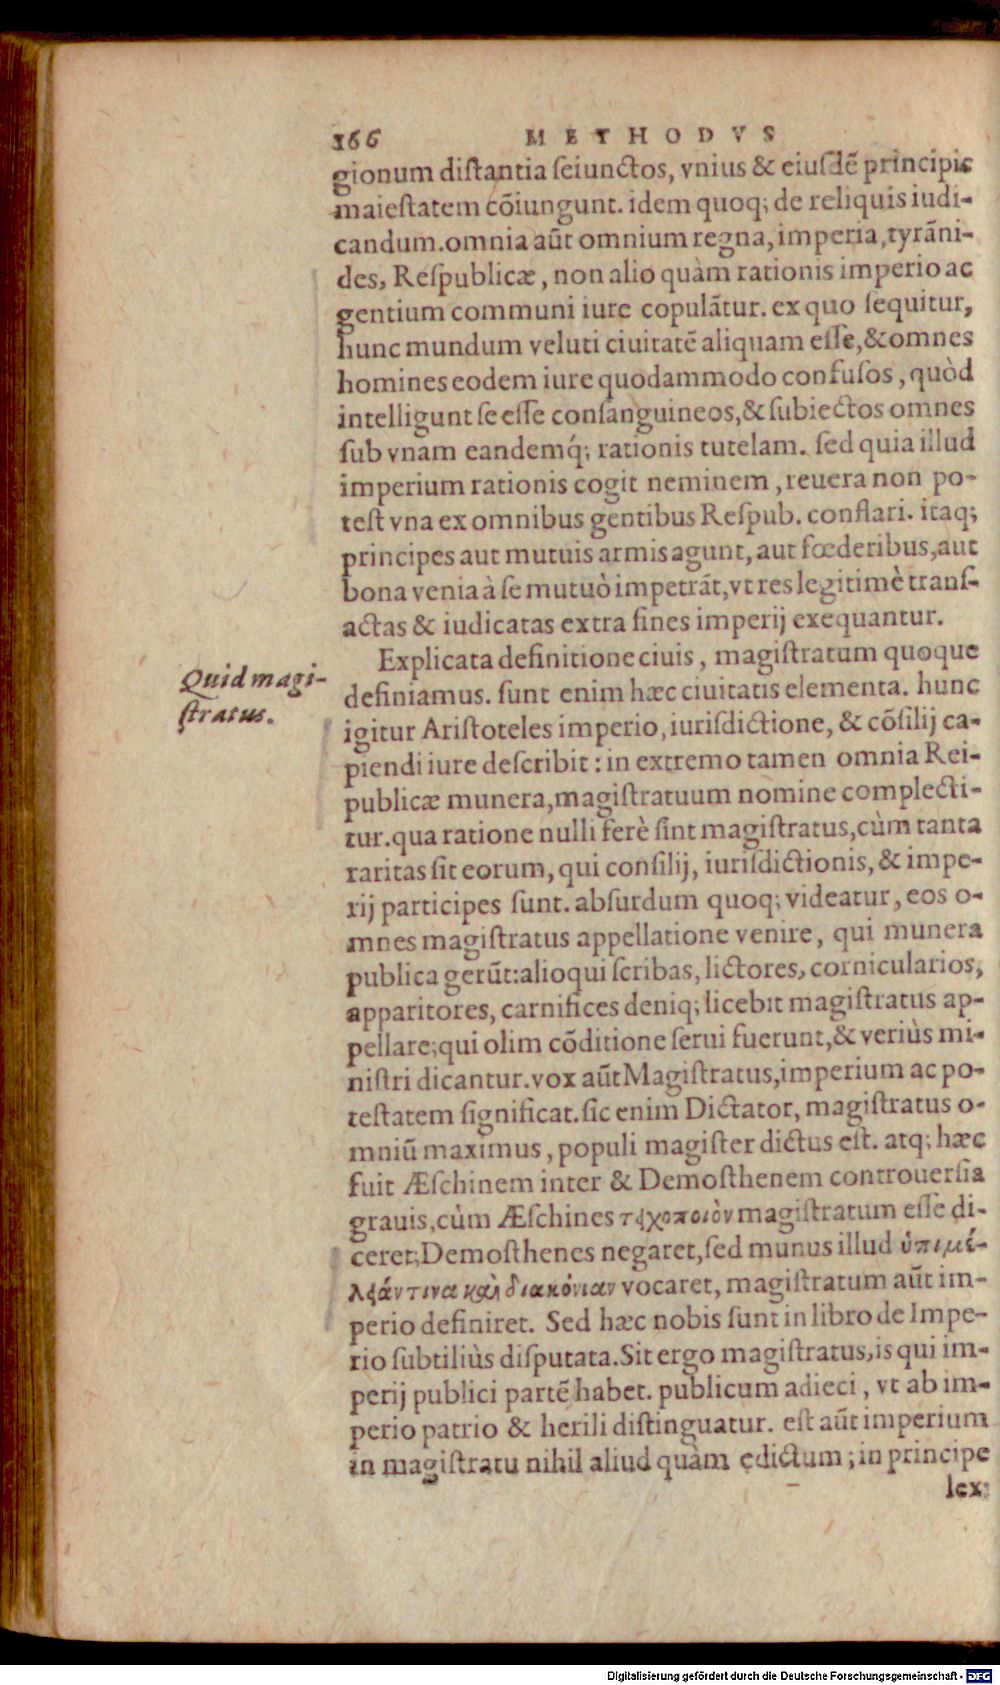 166 METHODVS
gionum diſtantia ſeiunctos, vnius & eiuſdē principis
maieſtatem cōiungunt. idem quoq; de reliquis iudi-
candum. omnia aūt omnium regna, imperia, tyrāni-
des, Reſpublicæ, non alio quàm rationis imperio ac
gentium communi iure copulātur. ex quo ſequitur,
hunc mundum veluti ciuitatē aliquam eſſe, & omnes
homines eodem iure quodammodo confuſos, quòd
intelligunt ſe eſſe conſanguineos, & ſubiectos omnes
ſub vnam eandemq́; rationis tutelam. ſed quia illud
imperium rationis cogit neminem, reuera non po-
teſt vna ex omnibus gentibus Reſpub. conflari. itaq;
principes aut mutuis armis agunt, aut fœderibus, aut
bona venia à ſe mutuò impetrāt, vt res legitimè tranſ-
actas & iudicatas extra fines imperij exequantur.
Explicata definitione ciuis, magiſtratum quoque
Quid magi-
ſtratus.
definiamus. ſunt enim hæc ciuitatis elementa. hunc
igitur Ariſtoteles imperio, iuriſdictione, & cōſilij ca-
piendi iure deſcribit: in extremo tamen omnia Rei-
publicæ munera, magiſtratuum nomine complecti-
tur. qua ratione nulli ferè ſint magiſtratus, cùm tanta
raritas ſit eorum, qui conſilij, iuriſdictionis, & impe-
rij participes ſunt. abſurdum quoq; videatur, eos o-
mnes magiſtratus appellatione venire, qui munera
publica gerūt: alioqui ſcribas, lictores, cornicularios,
apparitores, carnifices deniq; licebit magiſtratus ap-
pellare; qui olim cōditione ſerui fuerunt, & veriùs mi-
niſtri dicantur. vox aūt Magiſtratus, imperium ac po-
teſtatem ſignificat. ſic enim Dictator, magiſtratus o-
mniū maximus, populi magiſter dictus eſt. atq; hæc
fuit Æſchinem inter & Demoſthenem controuerſia
grauis, cùm Æſchines τειχοποιὸν magiſtratum eſſe di-
ceret; Demoſthenes negaret, ſed munus illud ὑπιμέ-
λειάν τινα καὶ διακόνιαν vocaret, magiſtratum aūt im-
perio definiret. Sed hæc nobis ſunt in libro de Impe-
rio ſubtiliùs diſputata. Sit ergo magiſtratus, is qui im-
perij publici partē habet. publicum adieci, vt ab im-
perio patrio & herili diſtinguatur. eſt aūt imperium
in magiſtratu nihil aliud quàm edictum; in principe
lex:
Digitalisierung gefördert durch die Deutsche Forschungsgemeinschaft - DFG